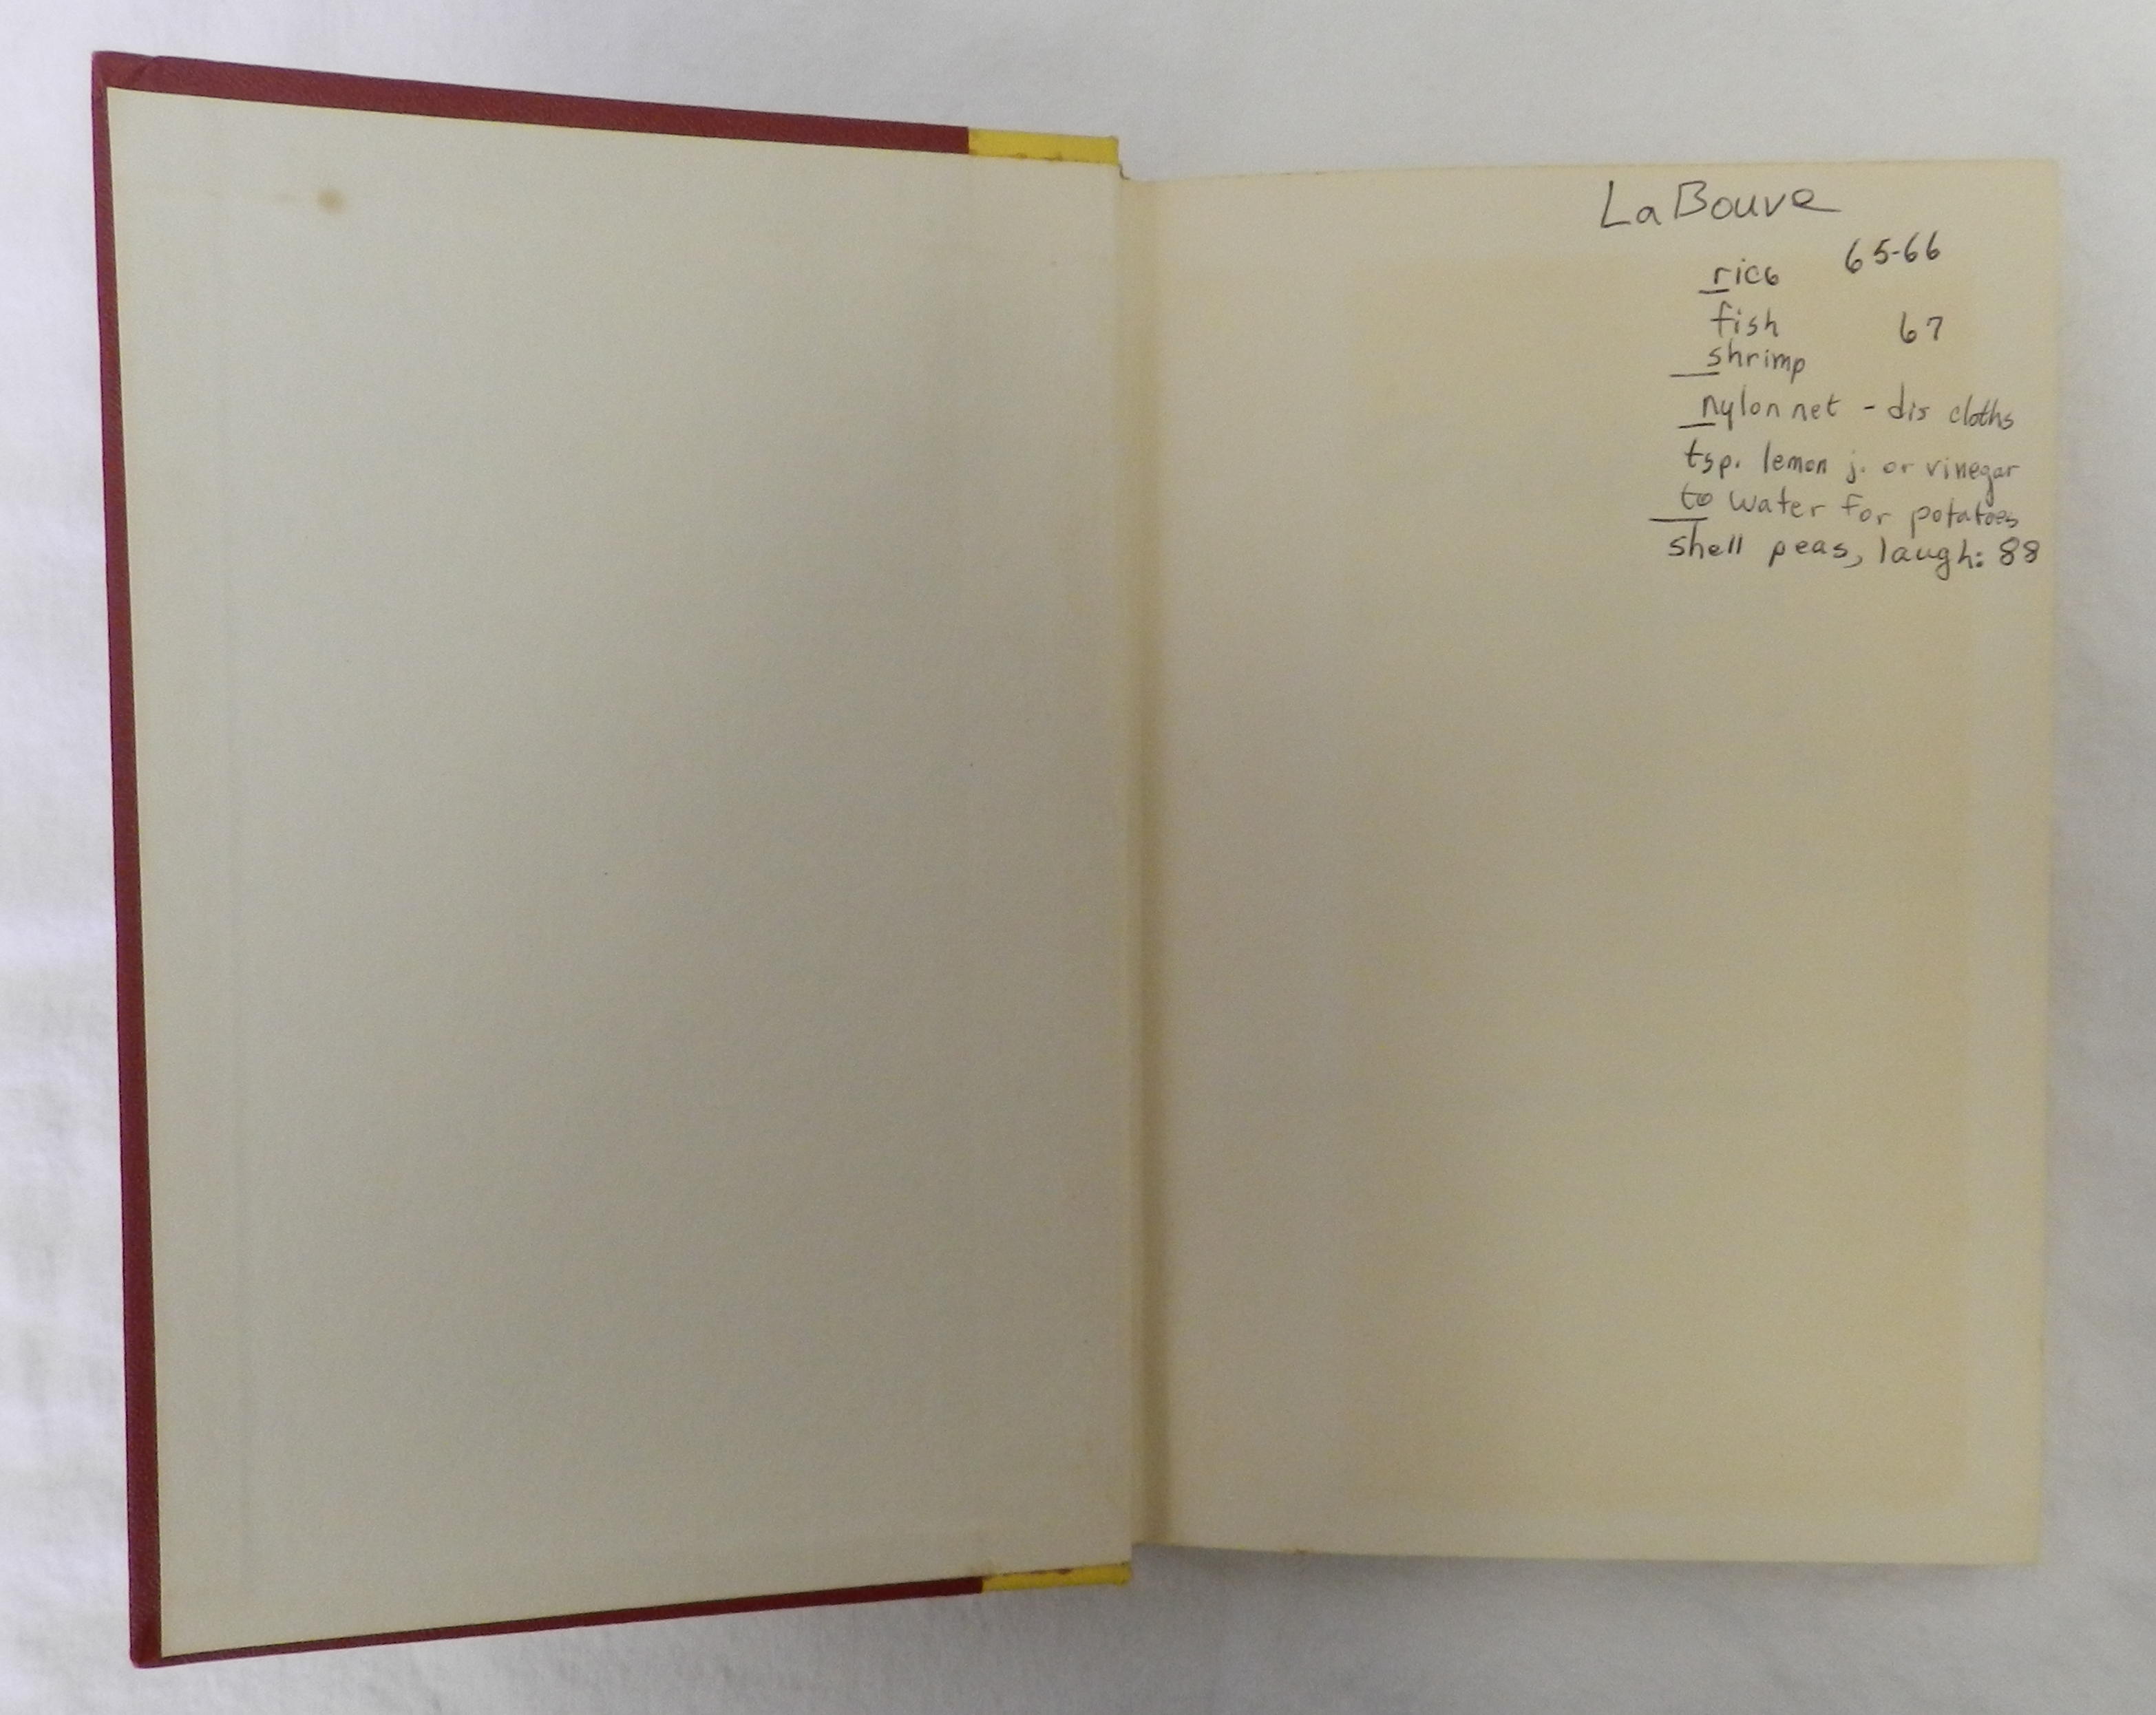 LaBouve
rice 65-66
fish 67
shrimp
nylon net - dis cloths
tsp. lemon j. or vinegar
to water for potatoes
shell peas, laugh: 88